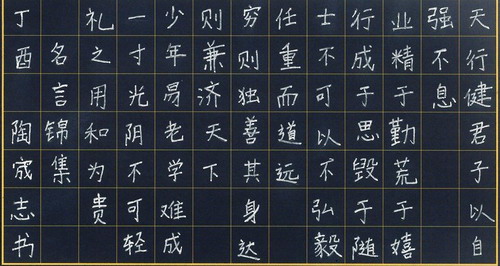 天行健君子以自
强不息
业精于勤荒于嬉
行成于思毁于随
士不可以不弘毅
任重而道远
穷则独善其身达
则兼济天下
少年易老学难成
一寸光阴不可轻
礼之用和为贵
名言锦集
丁酉 陶宬志书